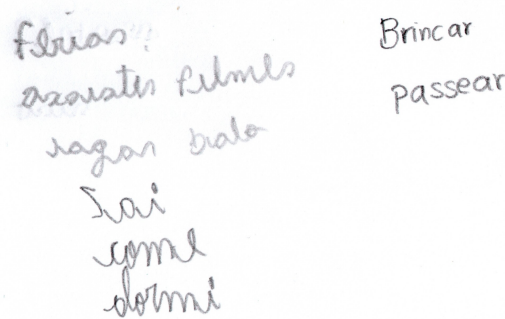 férias.
axaistes filmes
ragar bola
sai
come
dormi
Brincar
passear